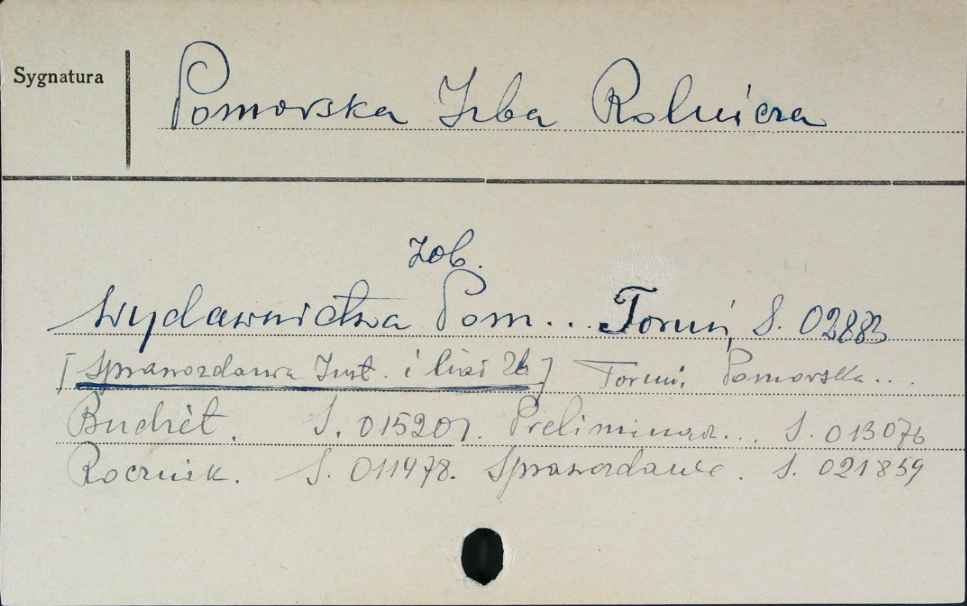 Sygnatura
Pomorska Izba Rolnicza
zob.
Wydawnictwa Pom... Toruń, S. 02883
[Sprawozdania Inst. i] Toruń, Pomorska...
Budżet. S. 015201. Preliminarz... S. 013076
Rocznik. S. 011478. Sprawozdanie. S. 021859